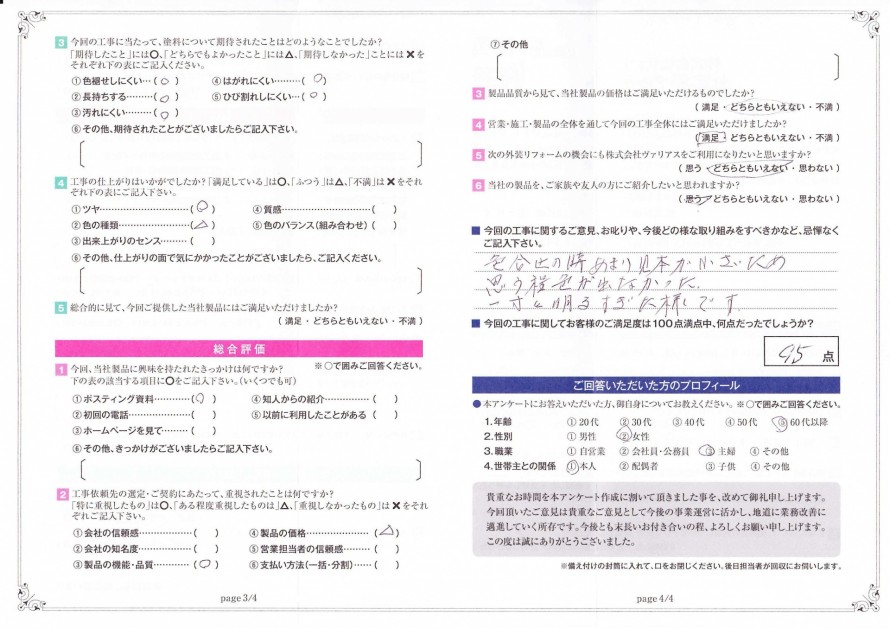 3 今回の工事に当たって、塗料について期待されたことはどのようなことでしたか?
「期待したこと」には〇、「どちらでもよかったこと」には△、「期待しなかった」ことには✖を
それぞれ下の表にご記入ください。
①色褪せしにくい…(○) ④はがれにくい………(○)
②長持ちする………(○) ⑤ひび割れしにくい…(○)
③汚れにくい………(○)
⑥その他、期待されたことがございましたらご記入下さい。
4 工事の仕上がりはいかがでしたか?「満足している」は〇、「ふつう」は△、「不満」は✖をそれ
ぞれ下の表にご記入下さい。
①ツヤ……………………(○) ④質感……………………( )
②色の種類………………(△) ⑤色のバランス(組み合わせ)( )
③出来上がりのセンス……( )
⑥その他、仕上がりの面で気にかかったことがございましたら、ご記入ください。
5 総合的に見て、今回ご提供した当社製品にはご満足いただけましたか?
(満足・どちらともいえない・不満)
総合評価
1 今回、当社製品に興味を持たれたきっかけは何ですか? ※〇で囲みご回答ください。
下の表の該当する項目に〇をご記入下さい。(いくつでも可)
①ポスティング資料…………(○) ④知人からの紹介…………( )
②初回の電話………………( ) ⑤以前に利用したことがある( )
③ホームページを見て………( )
⑥その他、きっかけがございましたらご記入下さい。
2 工事依頼先の選定・ご契約にあたって、重視されたことは何ですか?
「特に重視したもの」は〇、「ある程度重視したものは」△、「重視しなかったもの」は✖をそれ
ぞれご記入下さい。
①会社の信頼感……………( ) ④製品の価格………………(△)
②会社の知名度……………( ) ⑤営業担当者の信頼感………( )
③製品の機能・品質…………(○) ⑥支払い方法(一括・分割)……( )
page 3/4
⑦その他
3 製品品質から見て、当社製品の価格はご満足いただけるものでしたか?
(満足・どちらともいえない・不満)
4 営業・施工・製品の全体を通して今回の工事全体にはご満足いただけましたか?
(満足・どちらともいえない・不満)
5 次の外装リフォームの機会にも株式会社ヴァリアスをご利用になりたいと思いますか?
(思う・どちらともいえない・思わない)
6 当社の製品を、ご家族や友人の方にご紹介したいと思われますか?
(思う・どちらともいえない・思わない)
■ 今回の工事に関するご意見、お叱りや、今後どの様な取り組みをすべきかなど、忌憚なく
ご記入下さい。
色合せの時あまり見本が小さいため
思う程色が出なかった
一寸明るすぎた様です
■ 今回の工事に関してお客様のご満足度は100点満点中、何点だったでしょうか?
95 点
ご回答いただいた方のプロフィール
●本アンケートにお答えいただいた方、御自身についてお教えください。※〇で囲みご回答ください。
1.年齢 ①20代 ②30代 ③40代 ④50代 ⑤60代以降
2.性別 ①男性 ②女性
3.職業 ①自営業 ②会社員・公務員 ③主婦 ④その他
4.世帯主との関係 ①本人 ②配偶者 ③子供 ④その他
貴重なお時間を本アンケート作成に割いて頂きました事を、改めて御礼申し上げます。
今回頂いたご意見は貴重なご意見として今後の事業運営に活かし、地道に業務改善に
邁進していく所存です。今後とも末長いお付き合いの程、よろしくお願い申し上げます。
この度は誠にありがとうございました。
※備え付けの封筒に入れて、口をお閉じください。後日担当者が回収にお伺いします。
page 4/4